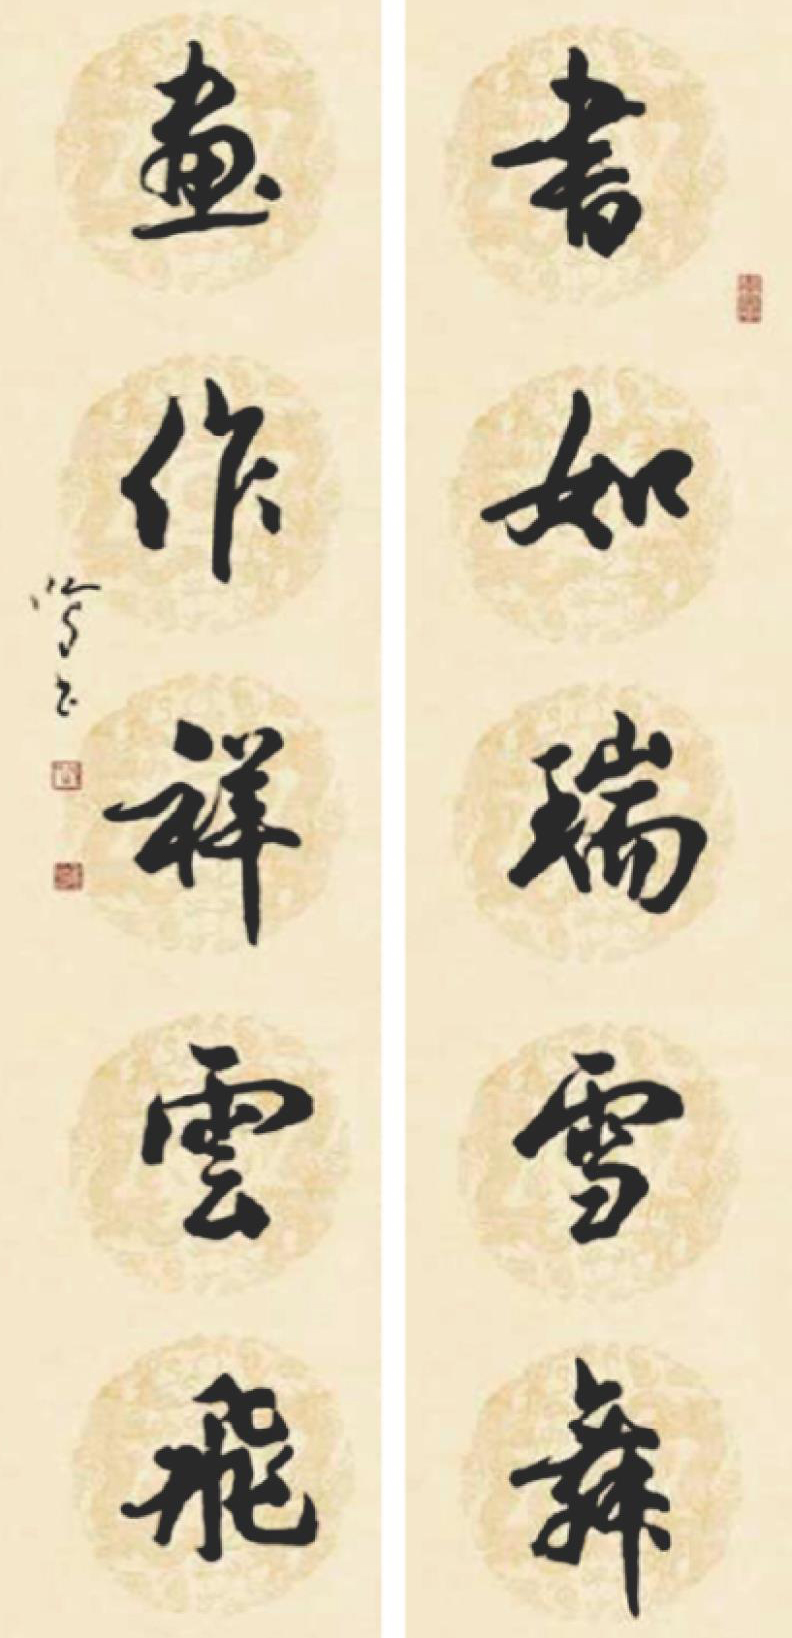 書如瑞雪舞
畫作祥雲飛